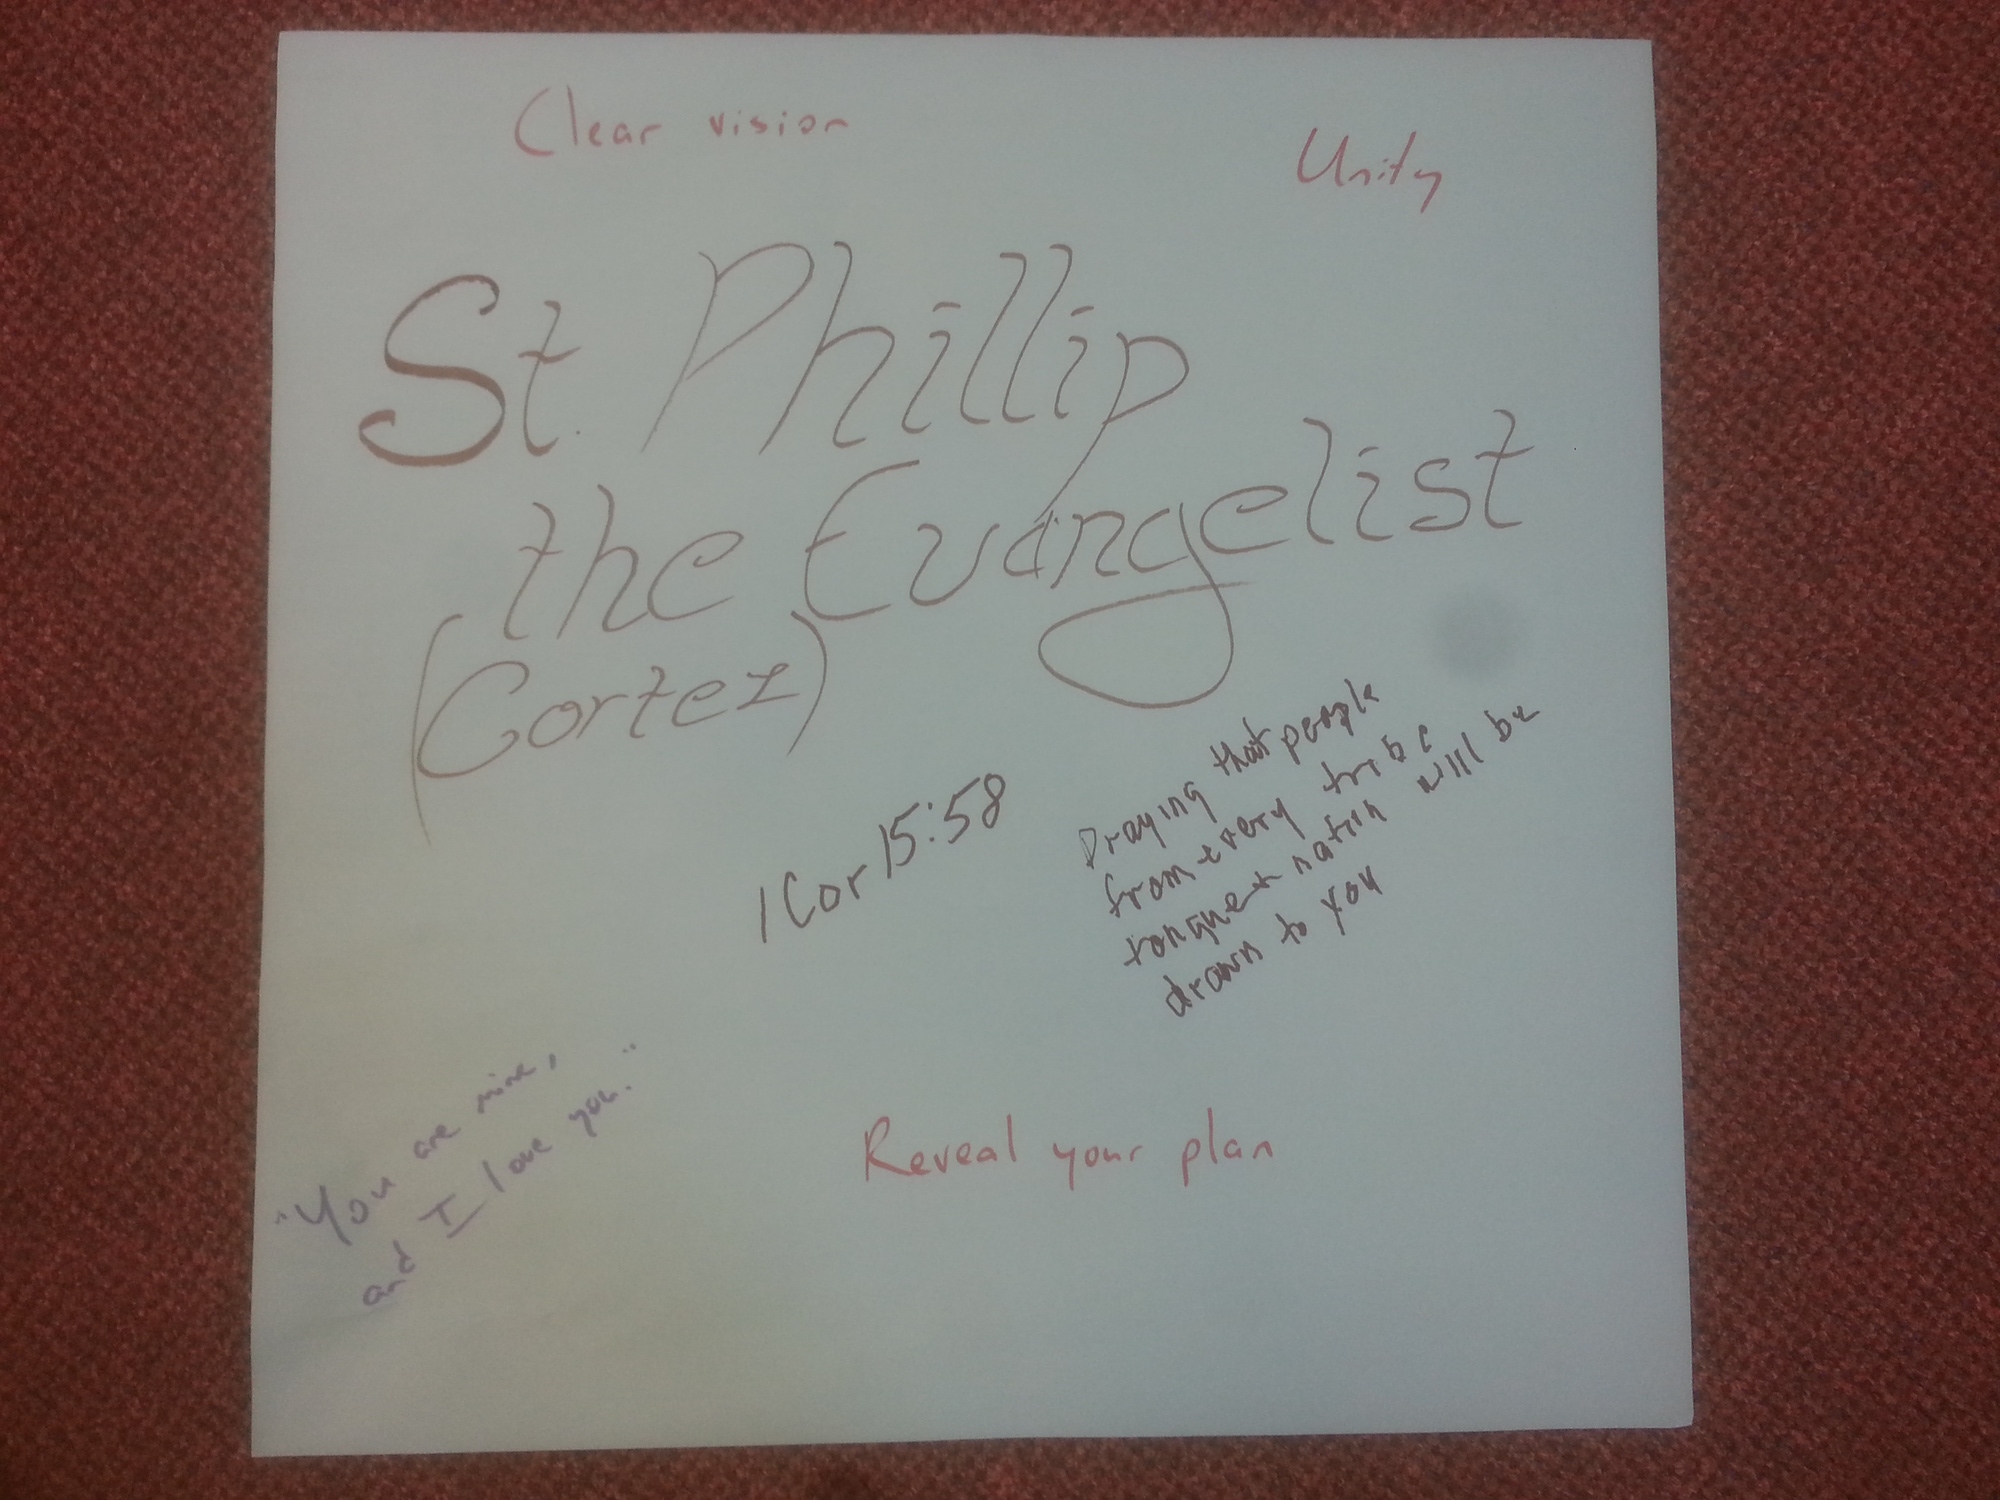 Clear vision
Unity
St. Phillip
the Evangelist
(Cortez)
1 Cor 15:58
Praying that people
from every tribe
tongue + nation will be
drawn to you
"You are mine,
and I love you."
Reveal your plan